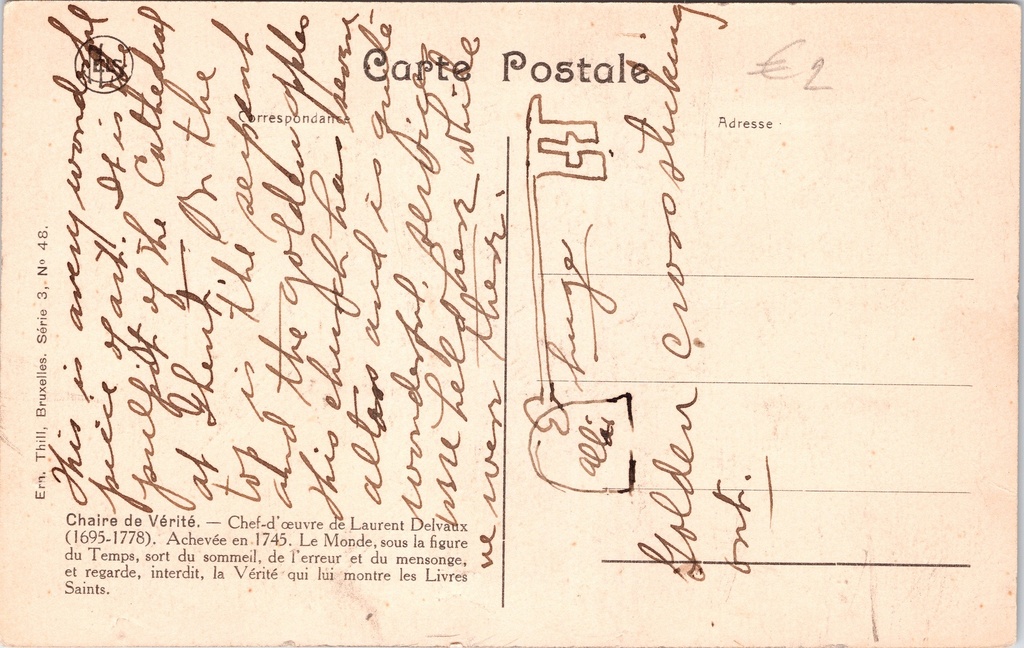 Carte Postale
Correspondance
Adresse
€2
NELS
Ern. Thill, Bruxelles. Série 3, No 48.
This is a very wonderful
piece of art. It is the
pulpit of the Cathedral
at Ghent. On the
top is the serpent
and the golden apples
this church has seven
altars and is quite
wonderful. Services
were held here while
we were there.
huge
Golden cross sticking
out.
Chaire de Vérité. — Chef-d'œuvre de Laurent Delvaux
(1695-1778). Achevée en 1745. Le Monde, sous la figure
du Temps, sort du sommeil, de l'erreur et du mensonge,
et regarde, interdit, la Vérité qui lui montre les Livres
Saints.